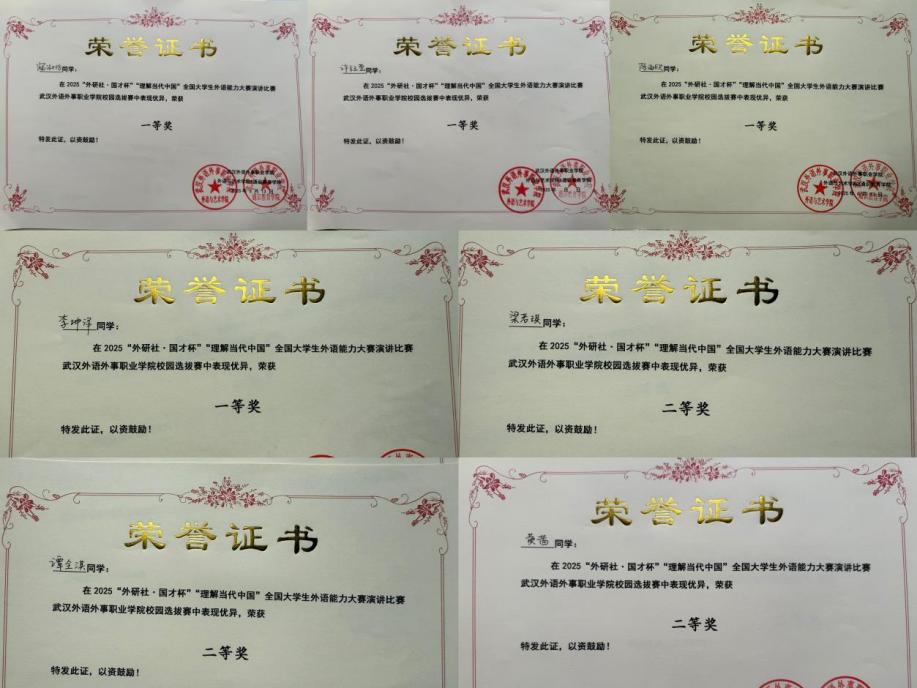 荣誉证书
同学：
在 2025 “外研社·国才杯” “理解当代中国” 全国大学生外语能力大赛演讲比赛
武汉外语外事职业学院校园选拔赛中表现优异，荣获
一等奖
特发此证，以资鼓励！
武汉外语外事职业学院
外语与艺术学院
荣誉证书
同学：
在 2025 “外研社·国才杯” “理解当代中国” 全国大学生外语能力大赛演讲比赛
武汉外语外事职业学院校园选拔赛中表现优异，荣获
一等奖
特发此证，以资鼓励！
武汉外语外事职业学院
外语与艺术学院
荣誉证书
同学：
在 2025 “外研社·国才杯” “理解当代中国” 全国大学生外语能力大赛演讲比赛
武汉外语外事职业学院校园选拔赛中表现优异，荣获
一等奖
特发此证，以资鼓励！
武汉外语外事职业学院
外语与艺术学院
荣誉证书
李坤泽同学：
在 2025 “外研社·国才杯” “理解当代中国” 全国大学生外语能力大赛演讲比赛
武汉外语外事职业学院校园选拔赛中表现优异，荣获
一等奖
特发此证，以资鼓励！
荣誉证书
梁若琪同学：
在 2025 “外研社·国才杯” “理解当代中国” 全国大学生外语能力大赛演讲比赛
武汉外语外事职业学院校园选拔赛中表现优异，荣获
二等奖
特发此证，以资鼓励！
荣誉证书
同学：
在 2025 “外研社·国才杯” “理解当代中国” 全国大学生外语能力大赛演讲比赛
武汉外语外事职业学院校园选拔赛中表现优异，荣获
二等奖
特发此证，以资鼓励！
荣誉证书
同学：
在 2025 “外研社·国才杯” “理解当代中国” 全国大学生外语能力大赛演讲比赛
武汉外语外事职业学院校园选拔赛中表现优异，荣获
二等奖
特发此证，以资鼓励！